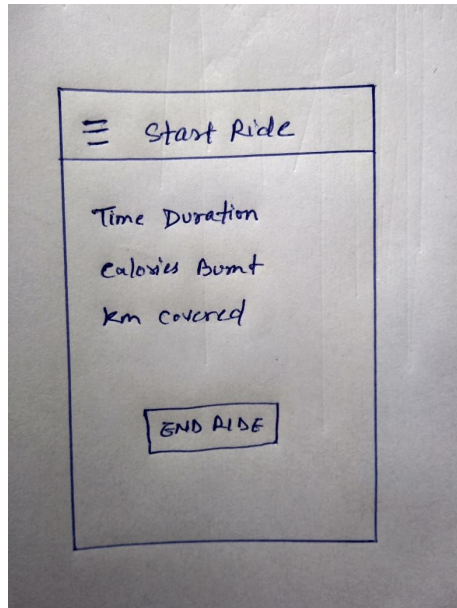 Start Ride
Time Duration
Calories Burnt
km covered
END RIDE